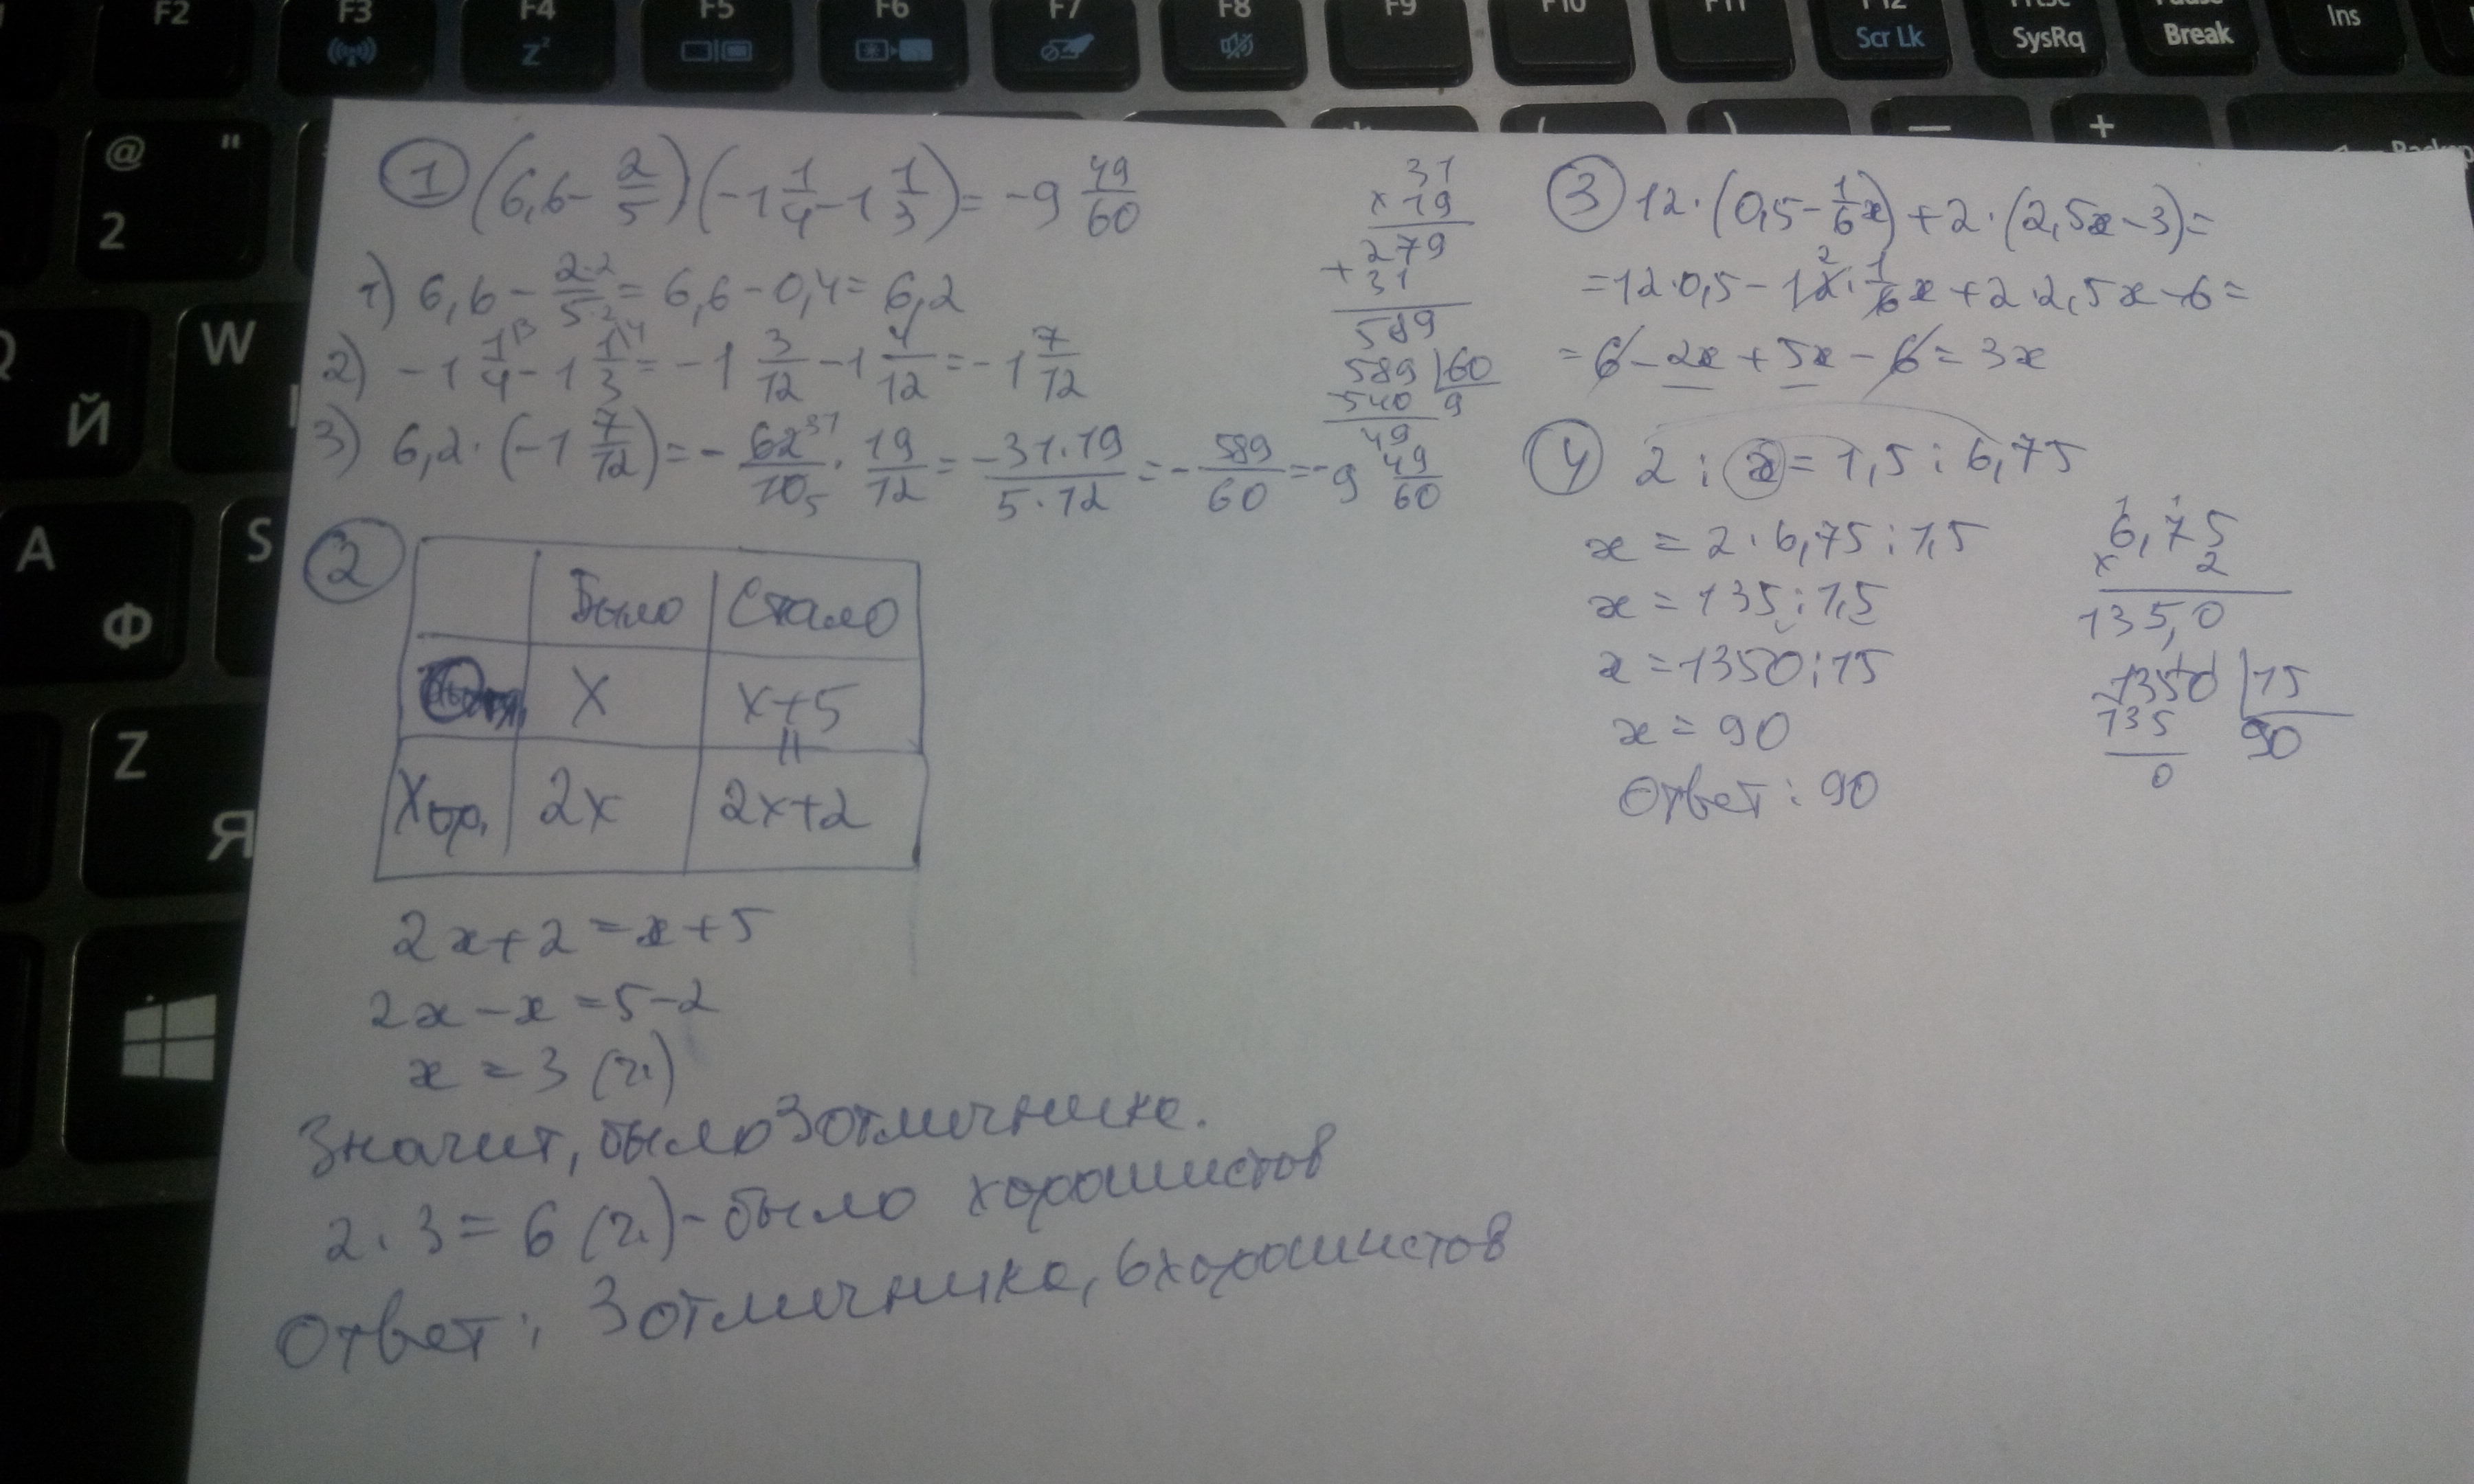 F2 F3 F4 F5 F6 F7 F8 F9 F10 F11 F12 PrtSc Pause Ins
Zz Scr Lk SysRq Break
@ " ( ) — +
2
W
Й
A S
Ф
Z
Я
① (6,6 - 2/5)(-1 1/4 - 1 1/3) = -9 49/60
1) 6,6 - 2·2/5·2 = 6,6 - 0,4 = 6,2
2) -1 1/4\3 - 1 1/3\4 = -1 3/12 - 1 4/12 = -1 7/12
3) 6,2·(-1 7/12) = - 62 31/10 5 · 19/12 = -31·19/5·12 = - 589/60 = -9 49/60
31
× 19
279
+ 31
589
589 | 60
540 9
49
②
Было Стало
Отл. x x+5
||
Хор. 2x 2x+2
2x+2=x+5
2x-x=5-2
x=3 (ч.)
Значит, было 3 отличника.
2·3=6 (ч.)- было хорошистов
Ответ: 3 отличника, 6 хорошистов
③ 12·(0,5 - 1/6x) + 2·(2,5x - 3) =
= 12·0,5 - 12 2·1/6x + 2·2,5x - 6 =
= 6 - 2x + 5x - 6 = 3x
④ 2 : x = 1,5 : 6,75
x = 2·6,75 : 1,5
x = 135 : 1,5
x = 1350 : 15
x = 90
Ответ: 90
1 1
6,75
× 2
135,0
1350 | 15
135 90
0